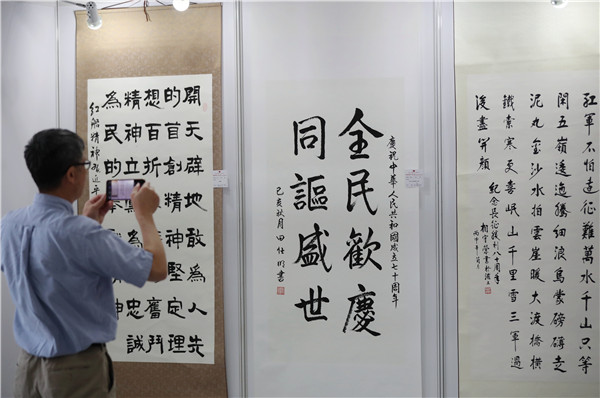 開天辟地敢為人先
的首創精神堅定理
想百折奮鬥
精神立忠誠
為民的神
紅船精神習近平
慶祝中華人民共和國成立七十周年
全民歡慶
同謳盛世
己亥秋月田仕明書
紅軍不怕遠征難萬水千山只等
閑五嶺逶迤騰細浪烏蒙磅礴走
泥丸金沙水拍雲崖暖大渡橋橫
鐵索寒更喜岷山千里雪三軍過
後盡開顏
紀念長征勝利八十周年